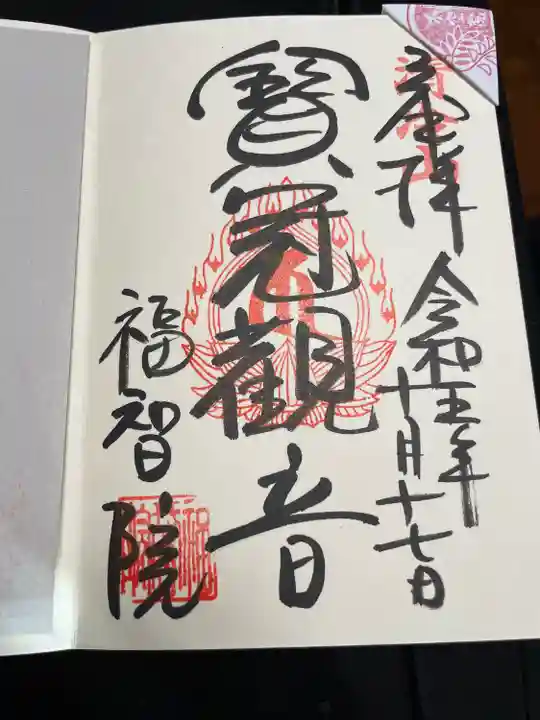 奉拝
令和五年
十月十七日
寶冠觀音
福智院